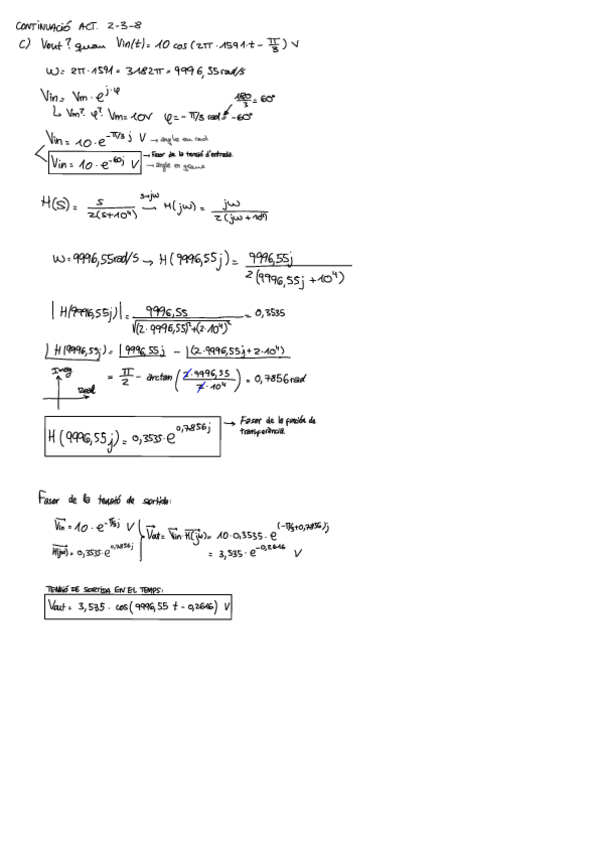 CONTINUACIÓ ACT. 2-3-8
C) Vout? quan Vin(t) = 10 cos(2π·1591·t - π/3) V
ω = 2π·1591 = 3182π = 9996,55 rad/s
Vin = Vm · e^j·φ
180/3 = 60°
↳ Vm? φ? Vm = 10V φ = -π/3 rad = -60°
Vin = 10 · e^-π/3 j V → angle en rad
Vin = 10 · e^-60j V → Fasor de la tensió d'entrada.
→ angle en graus
H(s) = s / 2(s+10⁴) s→jω → H(jω) = jω / 2(jω+10⁴)
ω = 9996,55 rad/s → H(9996,55j) = 9996,55j / 2(9996,55j + 10⁴)
|H(9996,55j)| = 9996,55 / √(2·9996,55)²+(2·10⁴)² = 0,3535
∠H(9996,55j) = ∠9996,55j - ∠(2·9996,55j + 2·10⁴)
Imag
= π/2 - arctan (2·9996,55 / 2·10⁴) = 0,7856 rad
Real
H(9996,55j) = 0,3535 · e^0,7856j → Fasor de la función de transferència.
Fasor de la tensió de sortida:
Vin = 10 · e^-π/3j V
H(jω) = 0,3535·e^0,7856j
Vout = Vin · H(jω) = 10·0,3535·e^(-π/3+0,7856)j
= 3,535 · e^-0,2616 V
TENSIÓ DE SORTIDA EN EL TEMPS:
Vout = 3,535 · cos(9996,55 t - 0,2616) V